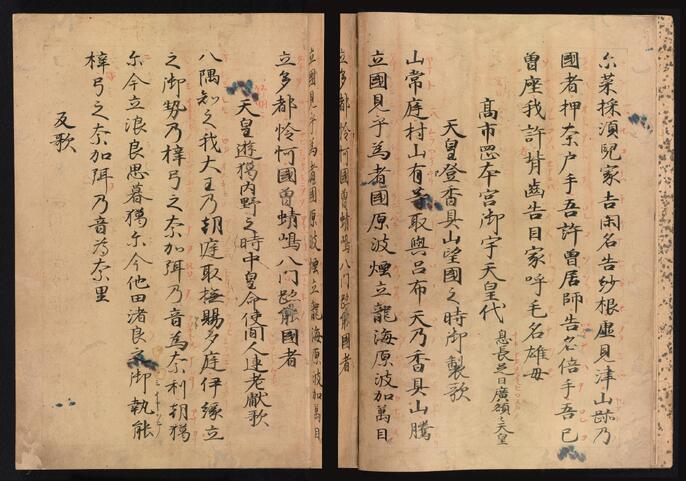 尓菜採湏皃家吉閑名告紗根虚見津山跡乃
國者押奈戸手吾許曽居師告名倍手吾己
曽座我許背齒告目家呼毛名雄母
高市罡本宮御宇天皇代 息長足日廣額天皇
天皇登香具山望國之時御製歌
山常庭村山有等取與呂布天乃香具山騰
立國見乎為者國原波煙立龍海原波加萬目
立多都怜㤎國曽蜻嶋八间跡能國者
立國見乎為者國原波煙立龍海原波加萬目
立多都怜㤎國曽蜻嶋八门跡能國者
天皇遊獦内野之時中皇命使間人連老獻歌
八隅知之我大王乃朝庭取撫賜夕庭伊縁立
之御執乃梓弓之奈加弭乃音為奈利朝獦
尓今立浪良思暮獦尓今他田渚良之御執能
梓弓之奈加弭乃音為奈里
反歌